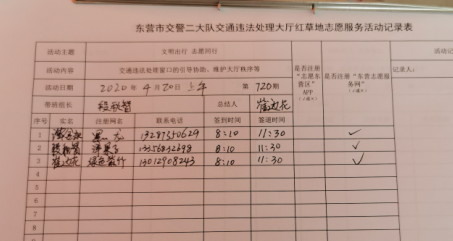 东营市交警二大队交通违法处理大厅红草地志愿服务活动记录表
活动主题 文明出行 志愿同行
活动内容 交通违法处理窗口的引导协助、维护大厅秩序等
活动日期 2020年4月20日上午 第720期
是否注册“志愿东营区”APP
是否注册“东营志愿服务网”
活动记
记录人:
带班组长 总结人 崔边花
序号 实名 注册网名 联系电话 签到时间 签退时间
1 13287310629 8:10 11:30 ✓
2 13356832698 8:10 11:30 ✓
3 崔边花 绿色出行 13012908243 8:10 11:30 ✓
4
5
6
7
8
9